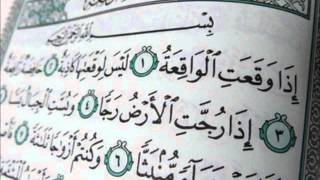 بِسْمِ ٱللَّهِ ٱلرَّحْمَٰنِ ٱلرَّحِيمِ
إِذَا وَقَعَتِ ٱلْوَاقِعَةُ ١ لَيْسَ لِوَقْعَتِهَا كَاذِبَةٌ ٢ خَافِضَةٌ رَّافِعَةٌ
٣ إِذَا رُجَّتِ ٱلْأَرْضُ رَجًّا ٤ وَبُسَّتِ ٱلْجِبَالُ بَسًّا
مُّنۢبَثًّا ٦ وَكُنتُمْ أَزْوَٰجًا ثَلَٰثَةً